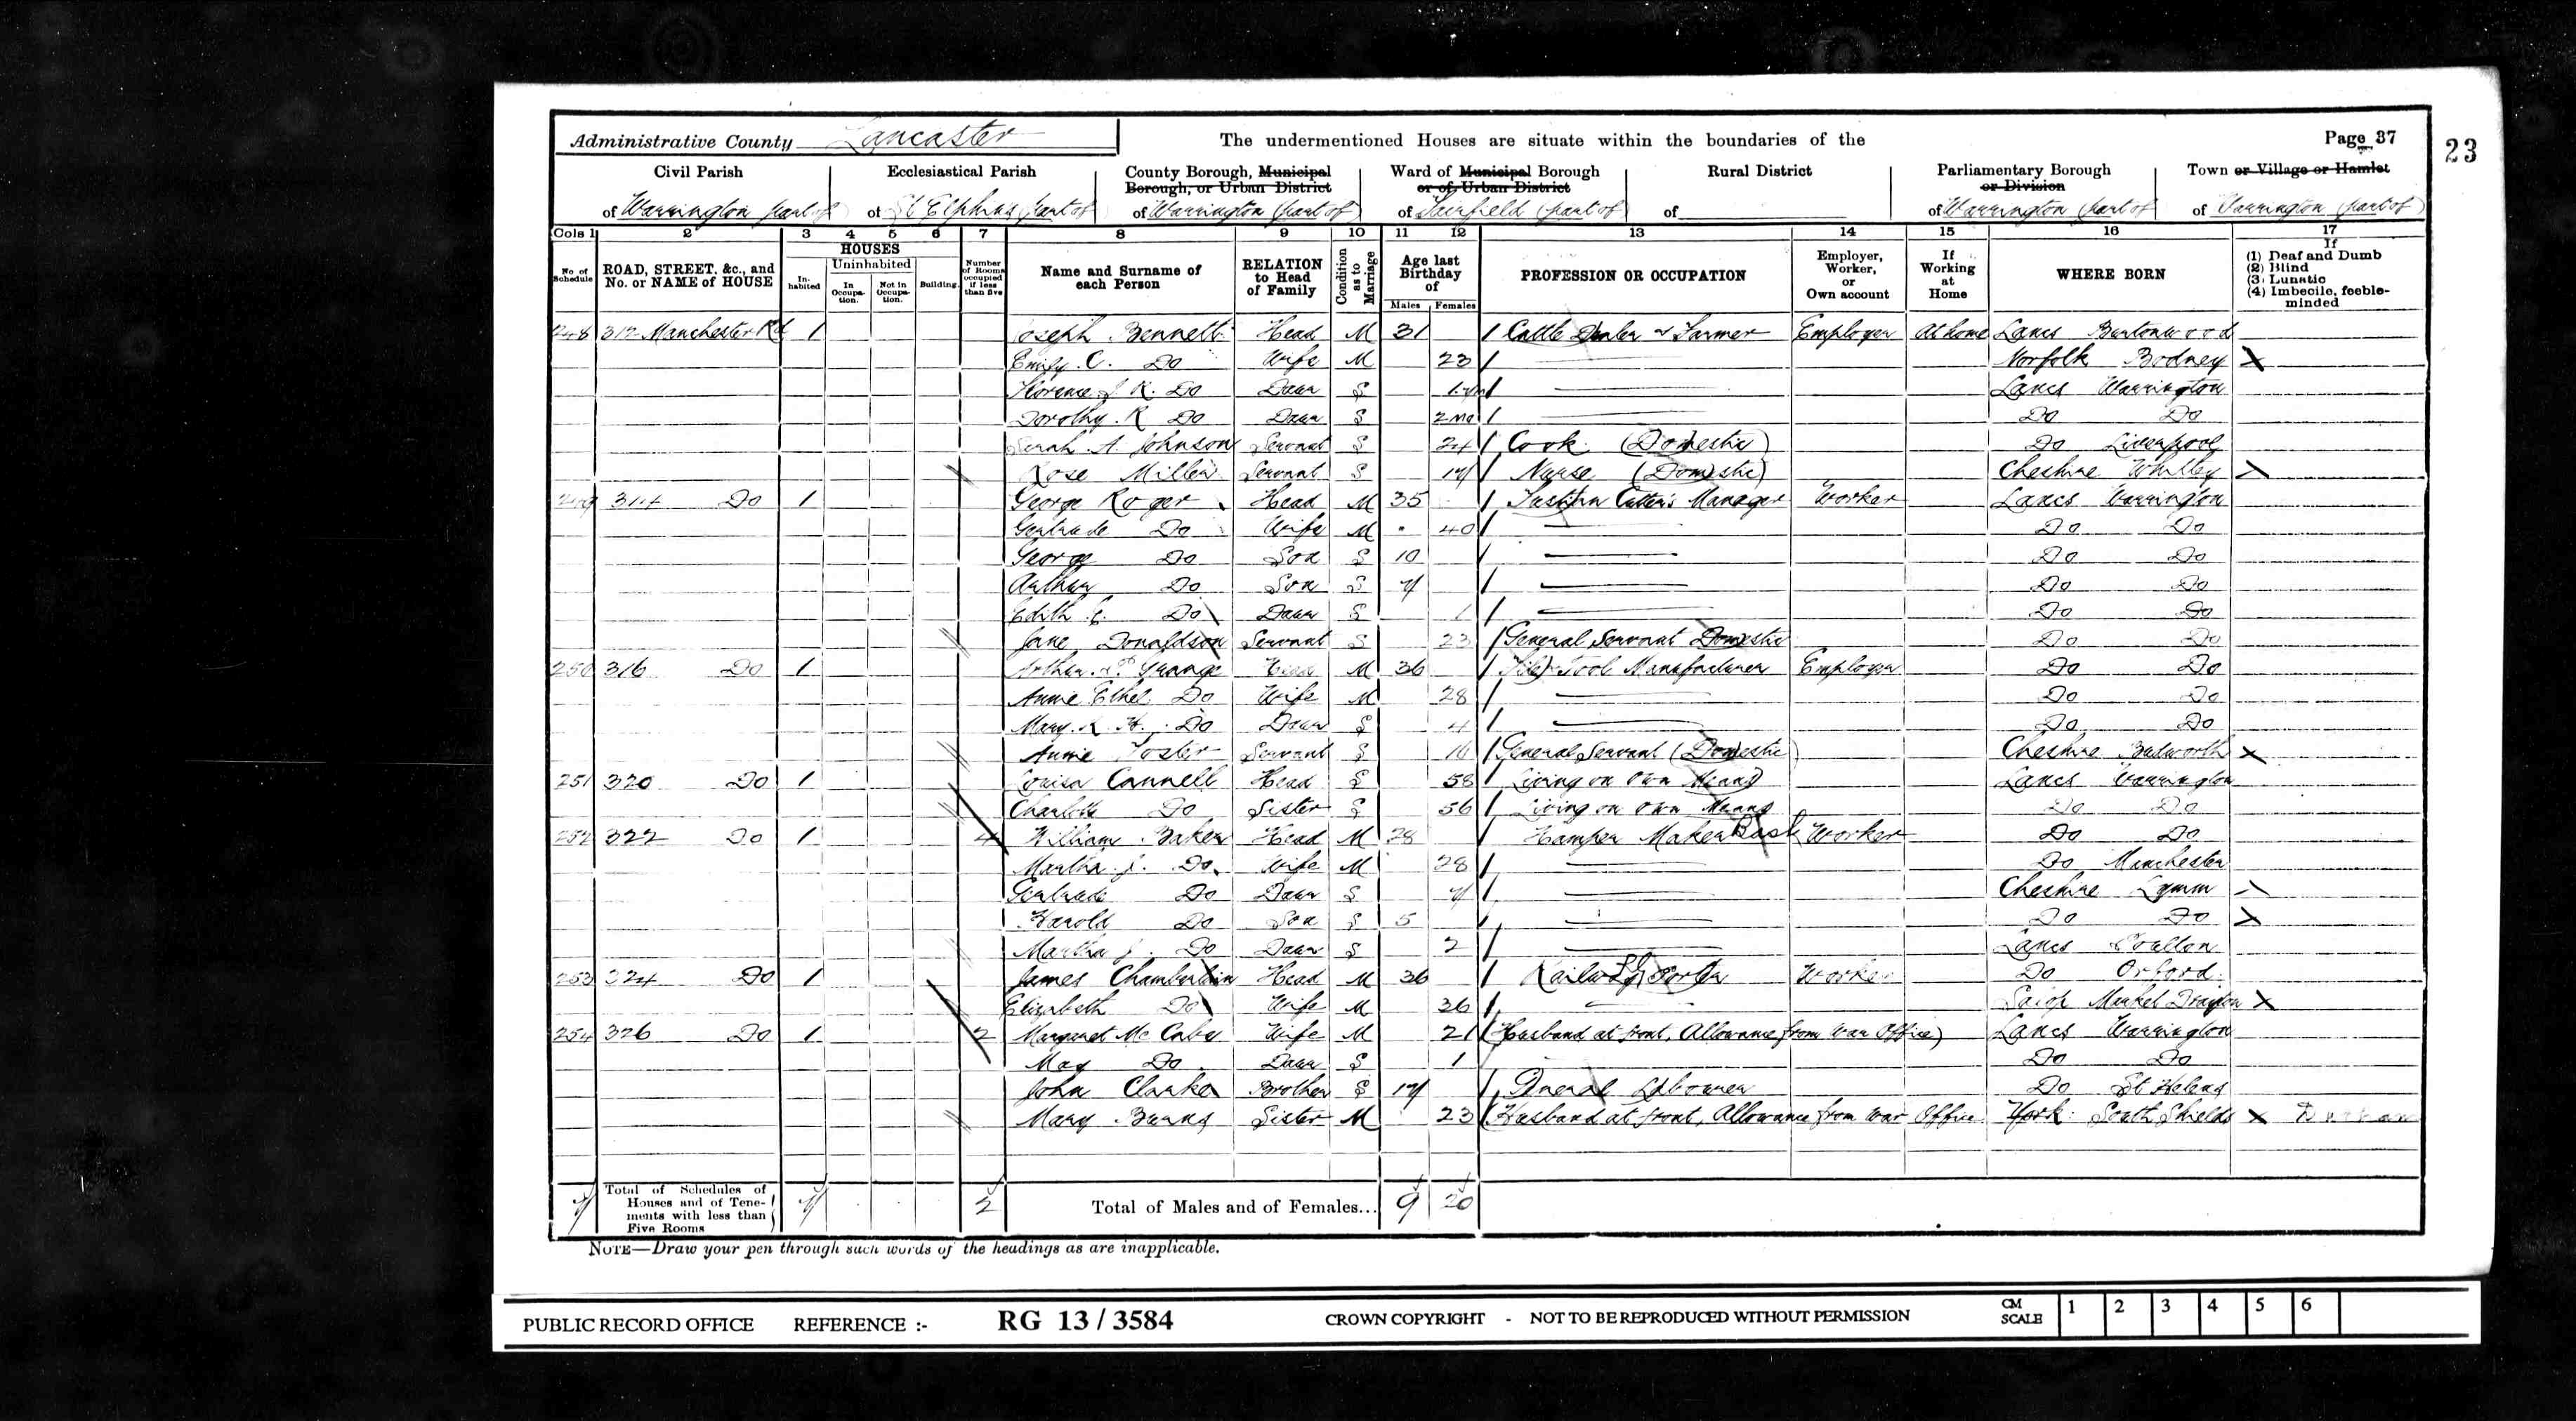 Administrative County Lancaster The undermentioned Houses are situate within the boundaries of the Page 37 23
Civil Parish Ecclesiastical Parish County Borough, Municipal Borough, or Urban District Ward of Municipal Borough or of Urban District Rural District Parliamentary Borough or Division Town or Village or Hamlet
of Warrington part of of St Elphins part of of Warrington (part of) of Fairfield (part of) of of Warrington (part of) of Warrington (part of)
Cols 1 2 3 4 5 6 7 8 9 10 11 12 13 14 15 16 17
No. of Schedule ROAD, STREET, &c., and No. or NAME of HOUSE HOUSES Inhabited Uninhabited In Occupation. Not in Occupation. Building. Number of Rooms occupied if less than five Name and Surname of each Person RELATION to Head of Family Condition as to Marriage Age last Birthday of Males Females PROFESSION OR OCCUPATION Employer, Worker, or Own account If Working at Home WHERE BORN If (1) Deaf and Dumb (2) Blind (3) Lunatic (4) Imbecile, feeble-minded
248 312 Manchester Rd 1 Joseph Bennett Head M 31 Cattle Dealer & Farmer Employer At home Lancs Burtonwood
Emily C. Do Wife M 23 Norfolk Bodney X
Florence J R. Do Daur S Lancs Warrington
Dorothy R Do Daur S 2 mo Do Do
Sarah A Johnson Servant S 24 Cook (Domestic) Do Liverpool
Rose Miller Servant S 17 Nurse (Domestic) Cheshire Whitley
249 314 Do 1 George Roger Head M 35 Fustian Cutter's Manager Worker Lancs Warrington
Gertrude Do Wife M 40 Do Do
George Do Son S 10 Do Do
Arthur Do Son S 7 Do Do
Edith E. Do Daur S 1 Do Do
Jane Donaldson Servant S 23 General Servant Domestic Do Do
250 316 Do 1 Arthur Grange Head M 36 File & Tool Manufacturer Employer Do Do
Annie Ethel Do Wife M 28 Do Do
Mary K. H. Do Daur S 4 Do Do
Annie Foster Servant S 16 General Servant (Domestic Cheshire Budworth X
251 320 Do 1 Louisa Cannell Head S 58 Living on Own Means Lancs Warrington
Charlotte Do Sister S 56 Living on Own Means Do Do
252 322 Do 1 4 William Baker Head M 28 Hamper Maker Bask Worker Do Do
Martha J. Do Wife M 28 Do Manchester
Gertrude Do Daur S 7 Cheshire Lymm
Harold Do Son S 5 Do Do
Martha J. Do Daur S 2 Lancs Poulton
253 324 Do 1 James Chamberlain Head M 36 Railway Porter Worker Do Orford
Elizabeth Do Wife M 36 Salop Market Drayton X
254 326 Do 1 2 Margaret Mc Cabe Wife M 21 (Husband at front, Allowance from War Office) Lancs Warrington
May Do Daur S 1 Do Do
John Clarke Brother S 17 General Labourer Do St Helens
Mary Burns Sister M 23 (Husband at front, Allowance from War Office York South Shields X Durham
7 Total of Schedules of Houses and of Tenements with less than Five Rooms 7 2 Total of Males and of Females... 9 20
NOTE—Draw your pen through such words of the headings as are inapplicable.
PUBLIC RECORD OFFICE REFERENCE :- RG 13 / 3584 CROWN COPYRIGHT - NOT TO BE REPRODUCED WITHOUT PERMISSION CM SCALE 1 2 3 4 5 6